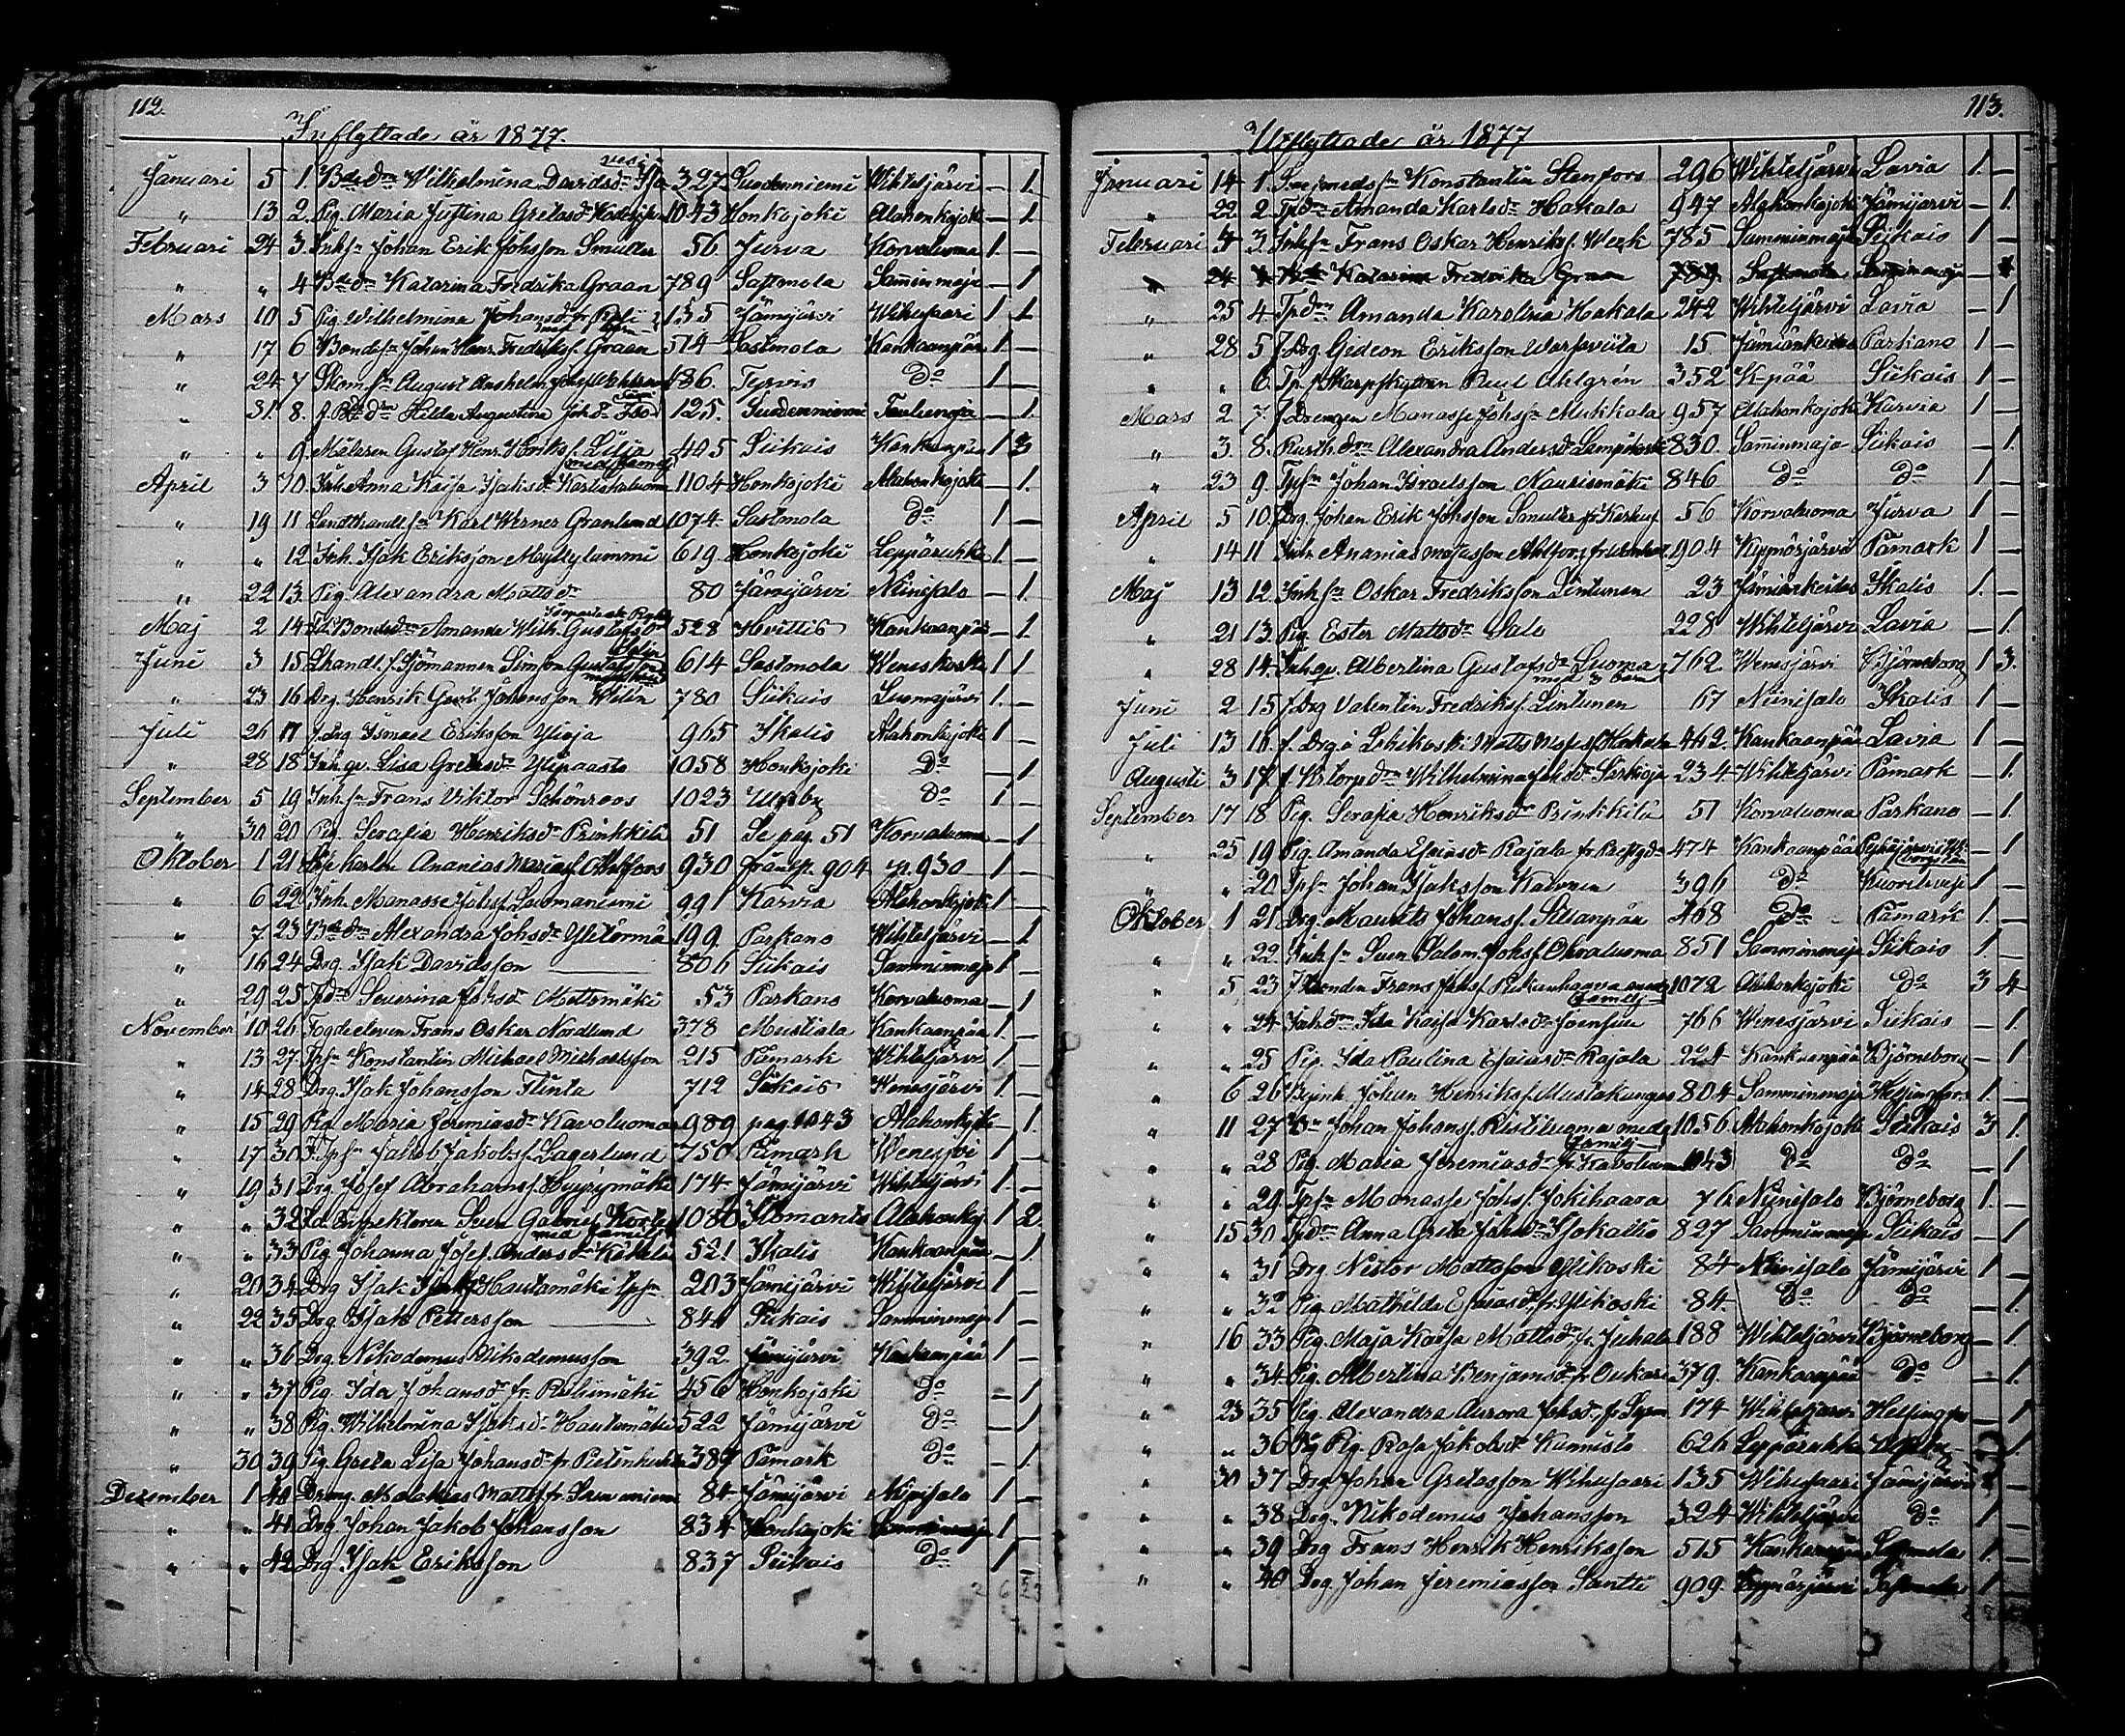 112.
Inflyttade år 1877.
Januari 5 1. Bdedr Wilhelmina Davidsdr 327 Suodenniemi Wihteljärvi — 1.
" 13 2. Pig. Maria Justina Gretasdr 1043 Honkojoki Alahonkojoki — 1.
Februari 24 3. Inhsn Johan Erik Johsson Smuller 56. Jurva Korvaluoma 1. —
" " 4 Bdedr Katarina Fredrika Graan 789 Sastmola Samminmaja — 1
Mars 10 5 Pig Wilhelmina Johansdr fr 135 Jämijärvi Wihusaari 1 1
" 17 6 Bondesn Johan Henr. Fredrikss. Graan 514 Sastmola Kankaanpää 1 —
" 24 7 Skom.sn August Anshelm 486. Tyrvis Do 1 —
" 31. 8. f. Bdedr Hilda Augustina Johdr 125. Suodenniemi — 1.
" " 9. Målaren Gustaf Henr. Henrikss. Lilja 445 Siikais Kankaanpää 1 3
med familj
April 3 10. Inh. Anna Kaisa Isaksdr 1104 Honkojoki Alahonkojoki — 1.
" 19 11 Landthandlsn Karl Werner Granlund 1074 Sastmola Do 1 —
" " 12 Inh. Isak Eriksson Myllylammi 619 Honkojoki Leppäruhka 1. —
" 22 13. Pig. Alexandra Mattsdr 80 Jämijärvi Niinisalo — 1.
Maj 2 14 Bondedr Amanda Wilh. Gustafsdr 528 Hvittis Kankaanpää — 1.
Juni 3 15 Lhandl. f. Sjömannen Simson Gustafsson 614 Sastmola Weneskoski 1 1
" 23 16 Drg. Henrik Gust. Johansson Wilén 780 Siikais Luomajärvi 1. —
Juli 26 17 f. Drg Ismael Eriksson Ylioja 965 Ikalis Alahonkojoki 1 —
" 28 18 Inh.qv. Lisa Gretasdr 1058 Honkojoki Do — 1.
September 5 19 Inh.sn Frans Viktor Schönroos 1023 Ulfsby Do 1 —
" 30 20 Pig. Serafia Henriksdr Prinkkilä 51 Se pag. 51 Korvaluoma — 1
Oktober 1 21 Ananias 930 från p. 904 p. 930 1 —
" 6 22 Inh. Manasse Johss. Luomaniemi 991 Karvia Alahonkojoki 1 —
" 7 23 Bdedr Alexandra Johsdr 199. Parkano Wihteljärvi — 1.
" 16 24 Drg. Isak Davidsson — 806 Siikais Samminmaja 1 —
" 29 25 Tpdr Severina Johsdr Mattsmäki 53 Parkano Korvaluoma — 1
November 10 26 Fogdeeleven Frans Oskar Nordlund 378 Mustiala Kankaanpää 1. —
" 13 27 Tpsn Konstantin Michael Michaelsson 215 Påmark Wihteljärvi 1. —
" 14 28 Drg. Isak Johansson Flinta 712 Siikais Wenesjärvi 1 —
" 15 29 Pig Maria Jeremiasdr Kavoluoma 989 pag. 1043 Alahonkojoki — 1.
" 17 30 F. Tpsn Jakob Jakobss. Lagerlund 750 Påmark 1 —
" 19 31 Drg Josef Abrahamss. 174 Jämijärvi Wihteljärvi 1. —
" " 32 Inspektoren Sven Gabriel 1080 Ilomants Alahonkoj. 1 2.
med familj
" " 33 Pig Johanna Josef. Andersdr 521 Ikalis Kankaanpää — 1.
" 20 34 Drg Isak Isakss. Hautamäki Tpsn 203 Jämijärvi Wihteljärvi 1 —
" 22 35 Drg Isak Pettersson — 841 Siikais Samminmaja 1 —
" " 36 Drg. Nikodemus Nikodemusson 392 Jämijärvi Kankaanpää 1 —
" " 37 Pig. Ida Johansdr fr. 456 Honkojoki Do — 1
" " 38 Pig. Wilhelmina Isaksdr Hautamäki 522 Jämijärvi Do — 1
" 30 39 Pig. Greta Lisa Johansdr fr 389 Påmark Do — 1.
December 1 40 Dreng. Malakias Mattss. fr. 84 Jämijärvi Niinisalo 1 —
" " 41. Drg Johan Jakob Johansson 834 Honkojoki Samminmaja 1 —
" " 42 Drg Isak Eriksson 837 Siikais Do 1 —
113.
Utflyttade år 1877
Januari 14 1. Konstantin Stenfors 296 Wihteljärvi Lavia 1. —
" 22 2 Tpdr Amanda Karlsdr Hakala 947 Alahonkojoki Jämijärvi — 1.
Februari 3 3. Inh.sn Frans Oskar Henrikss. Werk 785 Samminmaja Siikais 1 —
" 24 4 Katarina Fredrika Graan 789. Sastmola Samminmaja — 1
" 25 4 Tpdr Amanda Karolina Hakala 242 Wihteljärvi Lavia — 1
" 28 5 f. Drg Gideon Eriksson 15. Jämiänkeidas Parkano 1 —
" " 6. Tp. f. Skarpskytten Paul Ahlgrén 352 K-pää Siikais 1 —
Mars 2 7 f. Drengen Manasse Johsn Mukkala 957 Alahonkojoki Karvia 1 —
" 3. 8. Rusth.dr Alexandra Andersdr 830. Samminmaja Siikais — 1.
" 23 9. Tpsn Johan Israelsson Naurismäki 846 Do Do 1 —
April 5 10. Drg. Johan Erik Johsson Smuller 56 Korvaluoma Jurva 1 —
" 14 11 Inh. Ananias Ahlfors 904 Kyynärjärvi Påmark 1 —
Maj 13 12. Inh.sn Oskar Fredriksson Lintunen 23 Jämiänkeidas Ikalis 1. —
" 21 13. Pig. Ester Mattsdr Salo 228 Wihteljärvi Lavia — 1.
" 28 14. Inh.qv. Albertina Gustafsdr Luoma 762 Wenesjärvi Björneborg 1 3.
med 3 barn
Juni 2 15 f. Drg Valentin Fredrikss. Lintunen 67 Niinisalo Ikalis 1. —
Juli 13 16 f. Drg Matts 442. Kankaanpää Lavia 1 —
Augusti 3 17. Wilhelmina Johsdr 234 Wihteljärvi Påmark — 1.
September 17 18 Pig. Serafia Henriksdr Prinkkilä 51 Korvaluoma Parkano — 1.
" 25 19 Pig. Amanda Esaiasdr Rajala 474 Kankaanpää — 1
" " 20 Tpsn Johan Isaksson 396 Do Kuorevesi 1 —
Oktober 1 21 Drg. Maurits Johanss. Sillanpää 468 Do Påmark 1. —
" " 22. Inh.sn Sven Salom. Johss. Ohraluoma 851 Samminmaja Siikais 1. —
" 5 23 f. Bonden Frans Johss. med 1072 Alahonkojoki Do 3 4
familj
" " 24 Ida Kaisa Karlsdr Joensuu 766 Wenesjärvi Siikais — 1.
" " 25 Pig. Ida Paulina Esaiasdr Rajala 224 Kankaanpää Björneborg — 1
" 6 26 Johan Henrikss. Mustakangas 804 Samminmaja Helsingfors 1. —
" 11 27 Johan Johanss. Ristiluoma med 1056 Alahonkojoki Siikais 3 1.
familj
" " 28 Pig. Maria Jeremiasdr fr. Kavoluoma 1043 Do Do — 1.
" " 29. Tpsn Manasse Johss. Jokihaara 76 Niinisalo Björneborg 1. —
" 15 30 Tpdr Anna Greta Johdr Isokallio 827 Samminmaja Siikais — 1
" " 31 Drg Nestor Mattsson Ylikoski 84 Niinisalo Jämijärvi 1 —
" " 32 Pig. Mathilda Esaiasdr fr. Ylikoski 84. Do Do — 1.
" 16 33 Pig. Maja Kaisa Mattsdr fr. Juhala 188 Wihteljärvi Björneborg — 1.
" " 34 Pig. Albertina Benjamsdr fr. 379. Kankaanpää Do — 1.
" 23 35 Pig. Alexandra Aurora Johsdr 174 Wihteljärvi Helsingfors — 1
" " 36 Pig. Rosa Jakobsdr Kannisto 626 Leppäruhka Ulfsby — 1.
" 30 37 Drg. Johan Gretasson Wihusaari 135 Wihusaari Jämijärvi
" " 38 Drg. Nikodemus Johansson 324 Wihteljärvi Do 1 —
" " 39 Drg Frans Henrik Henriksson 515 Kankaanpää Sastmola 1. —
" " 40 Drg. Johan Jeremiasson Santti 909. Kyynärjärvi Sastmola 1 —